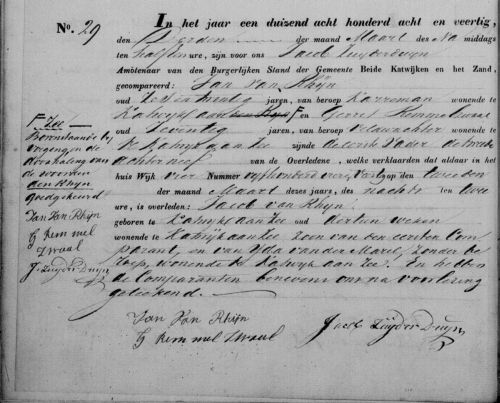 No. 29
In het jaar een duizend acht honderd acht en veertig,
den Derden der maand Maart des Na middags
ten half ure, zijn voor ons Jacob Zuyderduyn
Ambtenaar van den Burgerlijken Stand der Gemeente Beide Katwijken en het Zand,
gecompareerd: Jan van Rhijn
oud jaren, van beroep Karreman wonende te
Katwijk aan F en Gerrit Kemmelwaal
oud Zeventig jaren, van beroep wonende
te Katwijk aan Zee zijnde de eerste Vader de tweede
achterneef van de Overledene, welke verklaarden dat alduar in het
huis Wijk vier Nummer op den tweeden
der maand Maart dezes jaars, des nachts ten twee
ure, is overleden: Jacob van Rhijn
geboren te Katwijk aan Zee oud dertien weken
wonende te Katwijk aan Zee Zoon van den eersten Com
parant, en van van der Marel, Zonder be
roep, wonende te Katwijk aan Zee. En hebben
de Comparanten benevens ons na voorlezing
geteekend.
F Zee
Bovenstaande bij
voeging en de
doorhaling van
de woorden
den Rhijn
goedgekeurd
Jan Van Rhijn
G Kem mel
waal
J. Zuyder Duyn
Jan Van Rhijn
G Kem mel waal
Jacob Zuyder Duyn